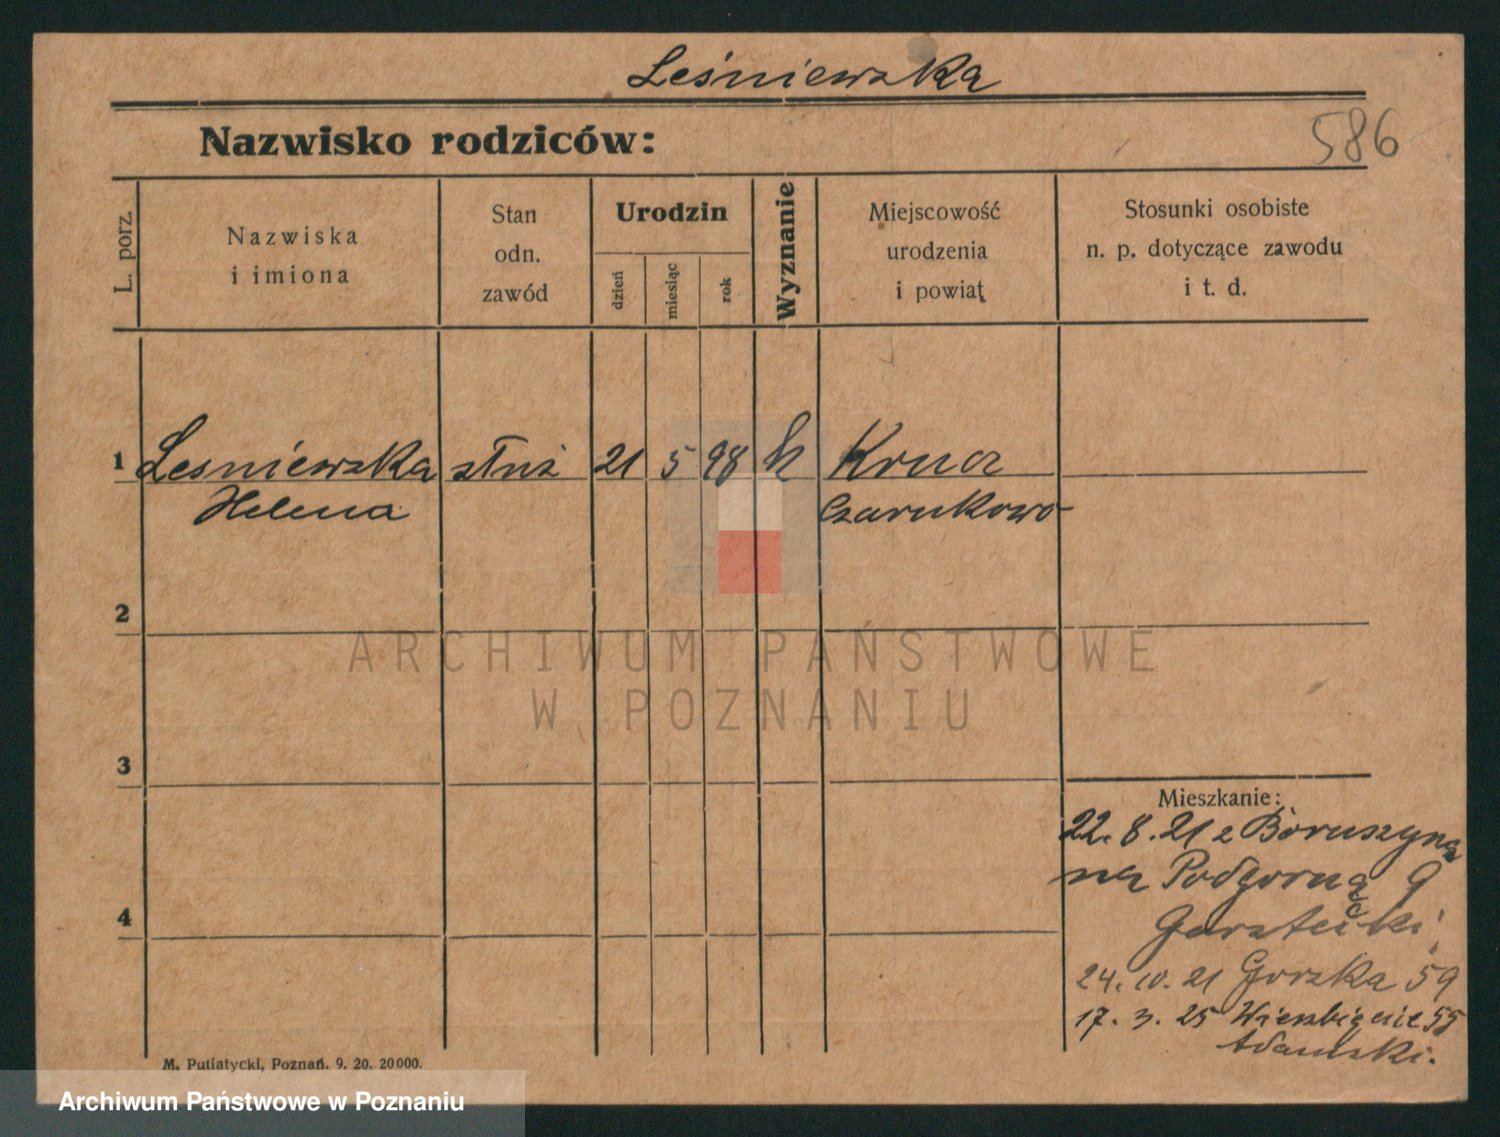 Leśniewska
Nazwisko rodziców:
586
L. porz.
Nazwiska
i imiona
Stan
odn.
zawód
Urodzin
dzień
miesiąc
rok
Wyznanie
Miejscowość
urodzenia
i powiat
Stosunki osobiste
n. p. dotyczące zawodu
i t. d.
1 Leśniewska służ 21 5 98 k Krucz
Helena Czarnkowo
2
3
4
Mieszkanie:
22. 8. 21 z Boruszyna
na Podgorną 9
24. 10. 21 Gorska 59
17. 3. 25 Wierzbięcie 55
Adamski.
M. Putiatycki, Poznań. 9. 20. 20000.
ARCHIWUM PAŃSTWOWE
W POZNANIU
Archiwum Państwowe w Poznaniu